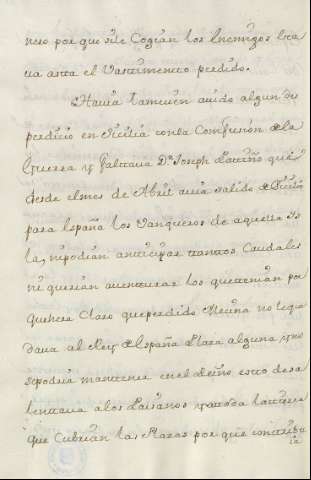 nero por que si le Cogian los Enemigos esta
ua asta el Vastimento perdido.
Hauia tamuien auido algun des
perdicio en Sicilia con la Confusion de la
Guerra y faltaua Dn Joseph Patiño que
desde el mes de Abril auia salido de Sicilia
para España los Vanqueros de aquella Is
la, ni podian anticipar tantos Caudales
ni querian auenturar los que tenian por
que hera Claro que perdido Mecina no le que
daua al Rey de España Plaza alguna, y no
se podria mantener en el Reino esto desa
lentaua a los Paisanos y a toda la tropa
que Cubrian las Plazas por que